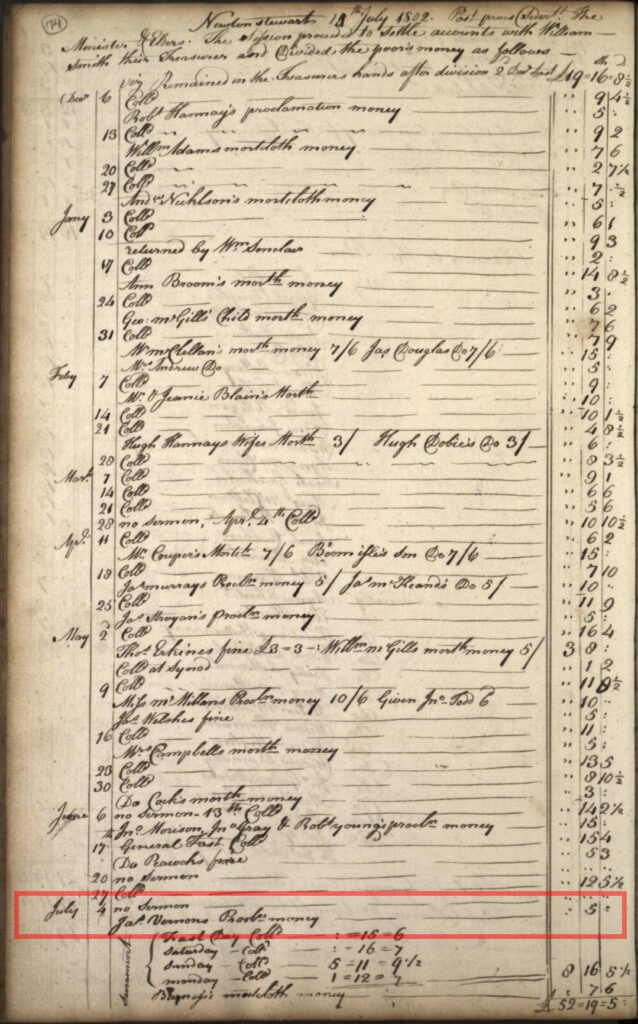 74
Newtonstewart 18th July 1802. Post preces Sedertt. The
Minister & Elders. The Session proceed to settle accounts with William
Smith their Treasurer and Divides the poor's money as follows
Sh D
Remained in the Treasurers hands after division 2d Decr last £19=16=8½
Decr 6 Colld " 9 4½
Robt Hannay's proclamation money " 5 :
13 Colld " 9 2
Willm Adams mortcloth money " 7 6
20 Colld " 2 7½
27 Colld " 7 ½
Andw Nichlson's mortcloth money " 5 :
Jany 3 Colld " 6 1
10 Colld " 9 3
returned by Wm Sinclair " 2 :
17 Colld " 14 8½
Ann Broom's morth money " 3 :
24 Colld " 6 2
Geo: McGills Child morth money " 7 6
31 Colld " 7 9
Mr McClellan's morth money 7/6 Jas Douglas Do 7/6 " 15 :
Mrs Andrew Do " 5 :
Feby 7 Colld " 9 :
Mr & Jeanie Blain's Morth " 10 :
14 Colld " 10 1½
21 Colld " 4 8½
Hugh Hannays Wifes Morth 3/ Hugh Dobie's Do 3/ " 6 :
28 Colld " 8 3½
Mart 7 Colld " 9 1
14 Colld " 6 6
21 Colld " 5 6
28 no Sermon, Aprl 4th Colld " 10 10½
Aprl 11 Colld " 6 2
Mr Couper's Mortth 7/6 Son Do 7/6 " 15 :
18 Colld " 7 10
Jas murrays Proclm money 5/ Jas Do 5/ " 10 "
25 Colld " 11 9
Jas Stroyan's Proclm money " 5 :
May 2d Colld " 16 4
Thos Erskines fine £3=3-: Willm McGills morth money 5/ 3 8 :
Colld at Synod " 1 2
9 Colld " 11 8½
Miss McMillans Proclm money 10/6 Given Jno Todd 6 " 10 "
Jas Welshes fine " 5 :
16 Colld " 11 :
Mrs Campbells morth money " 5 :
23 Colld " 13 5
30 Colld " 8 10½
Da Cock's morth money " 3 :
June 6 no Sermon. 13th Colld " 14 2½
Jno Morison, Jno Gray & Robt young's proclm money " 15 :
17 General Fast Colld " 15 4
Da Peacocks fine " 5 3
20 no Sermon
27 Colld " 12 5½
July 4 no Sermon
Jas Vernons Proclm money : 5 :
Sacrament
Fast Day Colld : =15=6
Saturday - Coll : -16=7
Sunday - Coll 5=11=9½
monday - Coll 1=12=7 8 16 5½
mortcloth money " 7 6
£52=19=5: